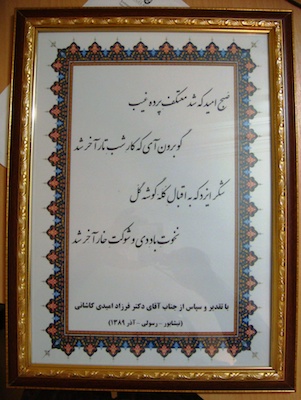 صبح امید که شد معتکف پرده غیب
گو برون آی که کار شب تار آخر شد
شکر ایزد که به اقبال کله گوشه گل
نخوت باد دی و شوکت خار آخر شد
با تقدیر و سپاس از جناب آقای دکتر فرزاد امیدی کاشانی
(نیشاپور - رسولی - آذر ۱۳۸۹)